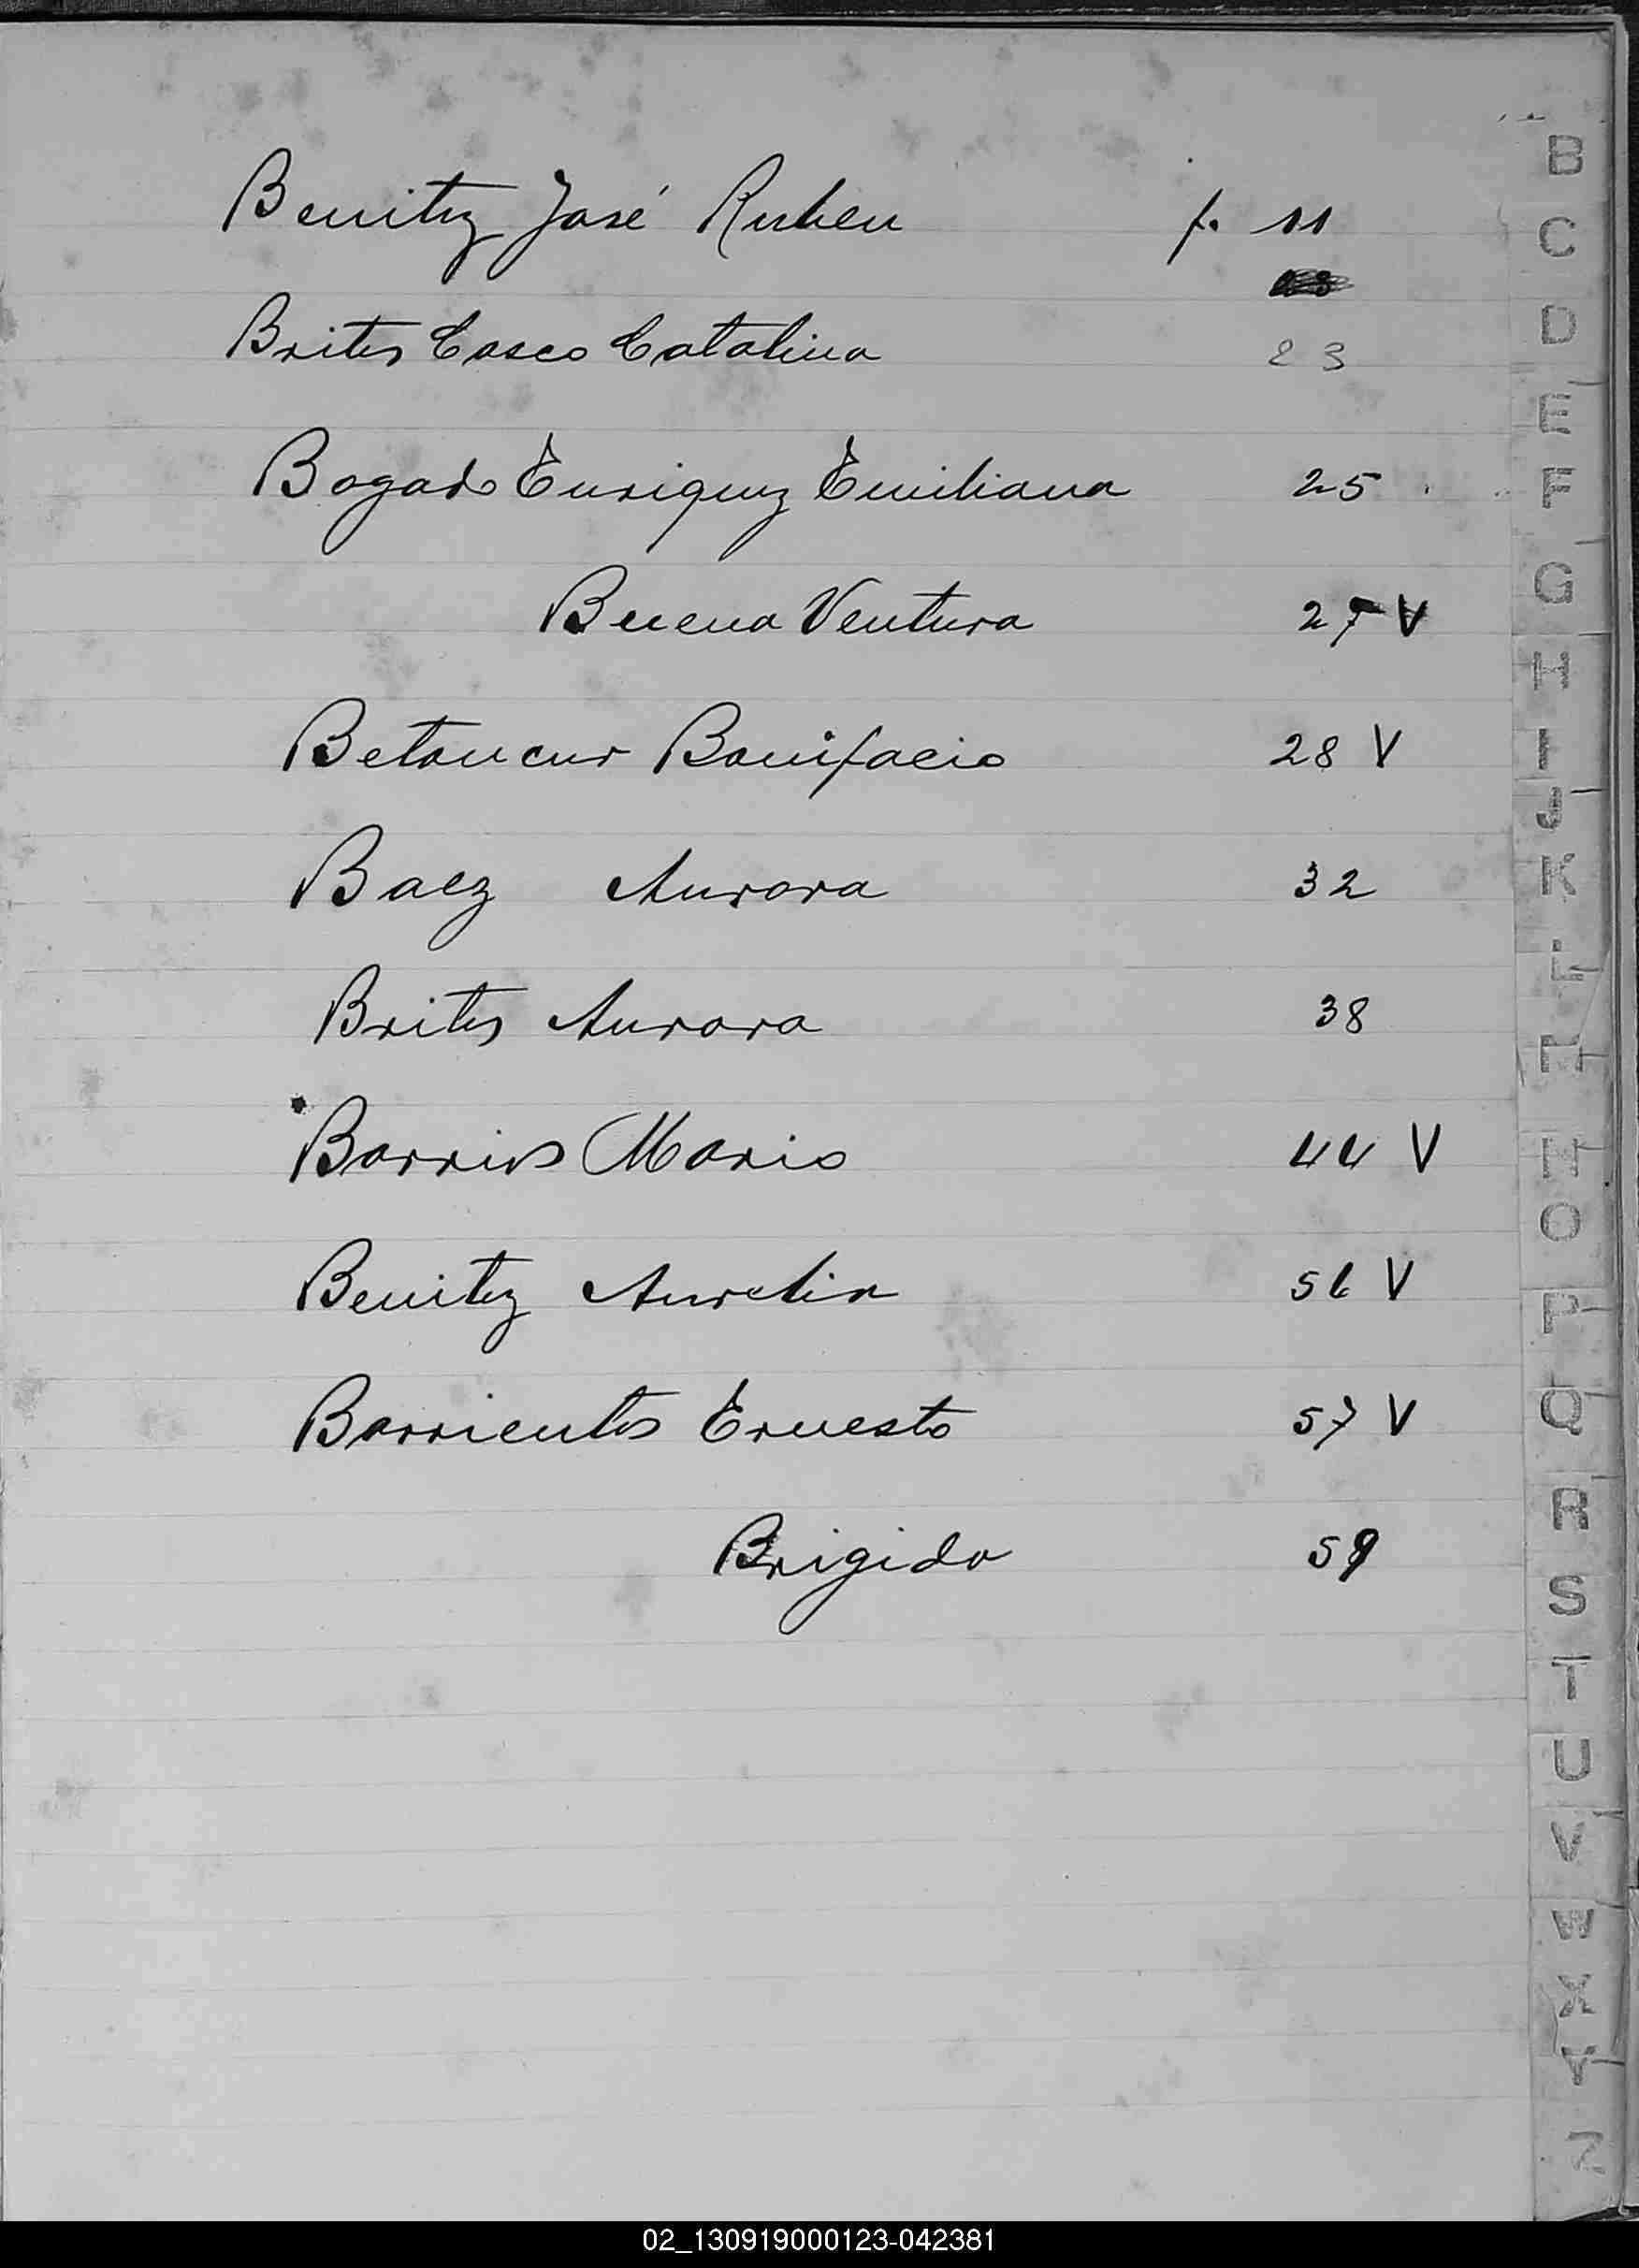 Benitez José Ruben f. 11
Brites Casco Catalina 23
Bogado Enriquez Emiliana 25
Buena Ventura 27 V
Betancur Bonifacio 28 V
Baez Aurora 32
Brites Aurora 38
Barrios Mario 44 V
Benitez Aurelia 56 V
Barrientos Ernesto 57 V
Brigida 59
B
C
D
E
F
G
H
I
J
K
L
M
N
O
P
Q
R
S
T
U
V
W
X
Y
Z
02_130919000123-042381